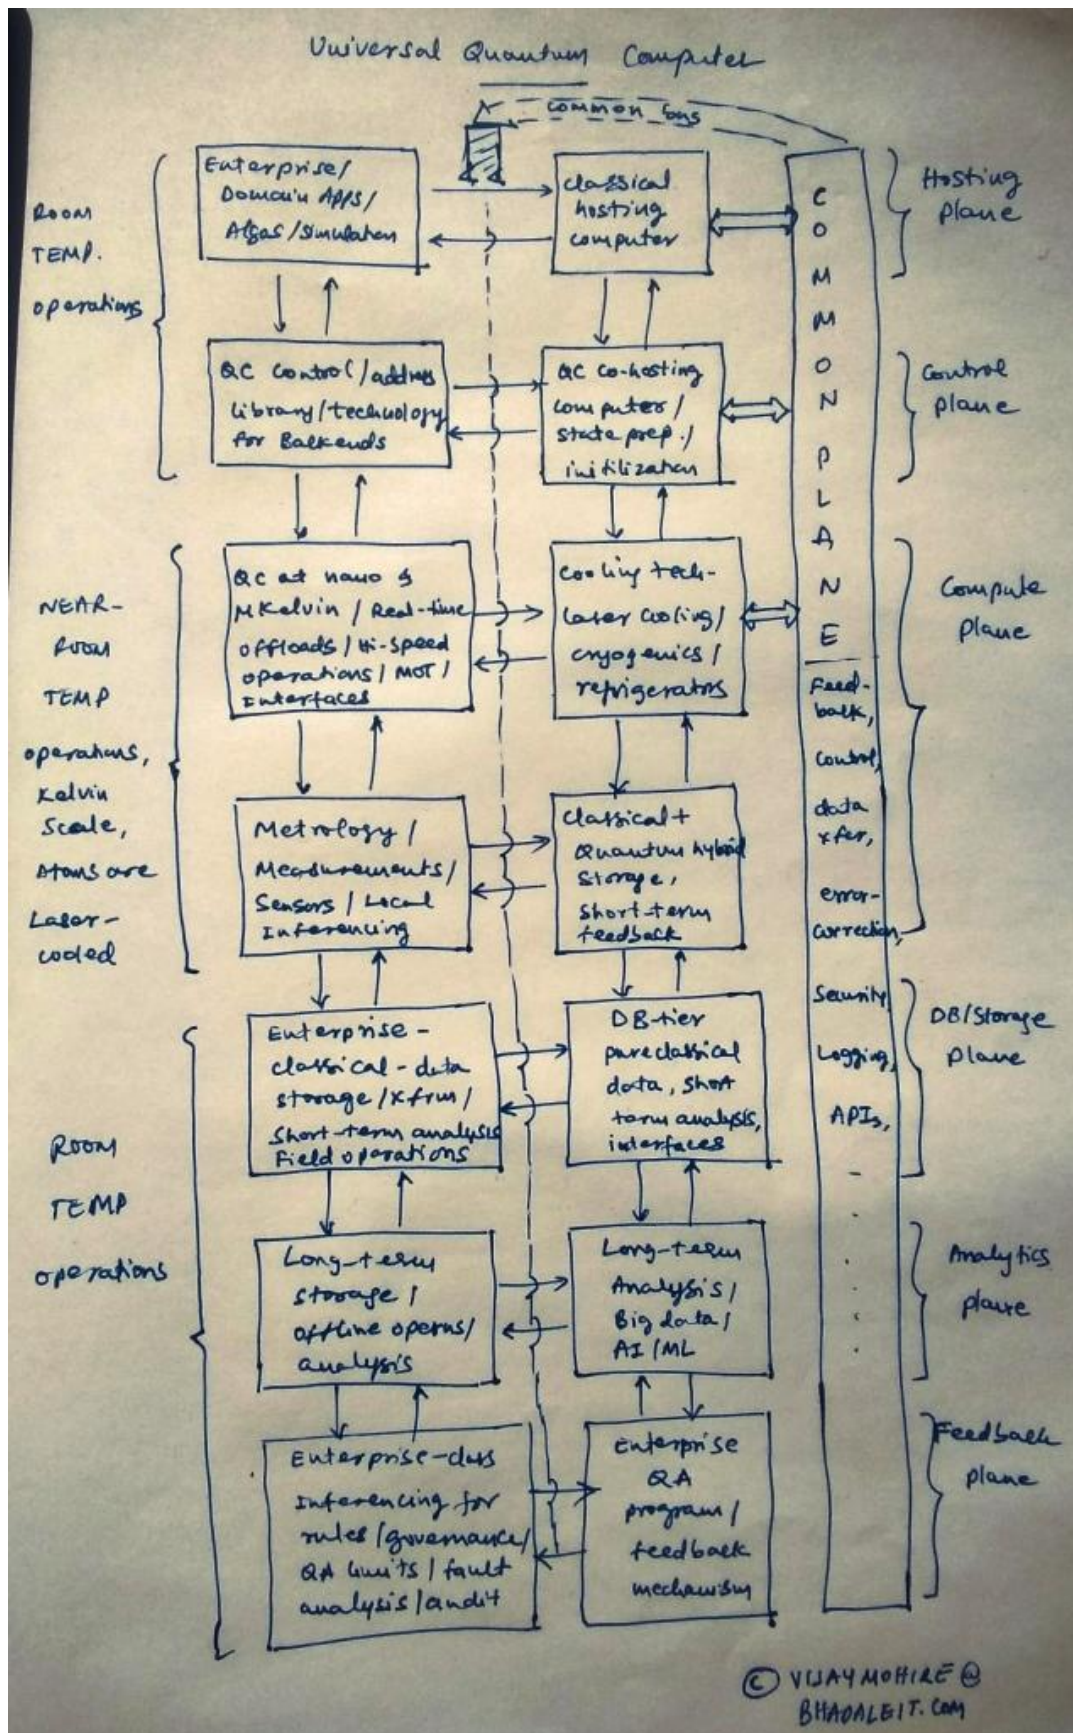 Universal Quantum Computer
common bus
ROOM
TEMP.
operations
Enterprise/
Domain Apps/
Algos/simulation
classical
hosting
computer
Hosting
plane
QC Control/address
library/technology
for Backends
QC Co-hosting
computer/
state prep./
initilization
Control
plane
NEAR-
ROOM
TEMP
operations,
Kelvin
Scale,
Atoms are
Laser-
cooled
QC at nano &
MKelvin/Real-time
offloads/Hi-speed
operations/MOT/
Interfaces
cooling tech-
laser cooling/
cryogenics/
refrigerators
Compute
plane
Metrology/
Measurements/
Sensors/Local
Inferencing
Classical+
Quantum hybrid
storage,
short-term
feedback
ROOM
TEMP
operations
Enterprise-
classical-data
storage/xfrm/
Short-term analysis
Field operations
DB-tier
pure classical
data, short
term analysis,
interfaces
DB/Storage
plane
Long-term
storage/
offline operns/
analysis
Long-term
Analysis/
Big data/
AI/ML
Analytics
plane
Enterprise-class
Inferencing for
rules/governance/
QA limits/fault
analysis/audit
Enterprise
QA
program/
feedback
mechanism
Feedback
plane
C
O
M
M
O
N
P
L
A
N
E
Feed-
back,
control,
data
xfer,
error-
correction,
Security,
Logging,
APIs,
© VIJAYMOHIRE@
BHADALEIT.COM